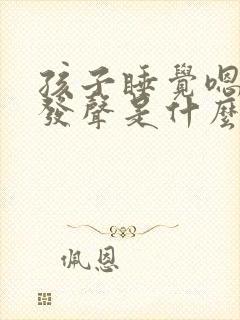 孩子睡覺嗯
發聲是什麼
佩恩